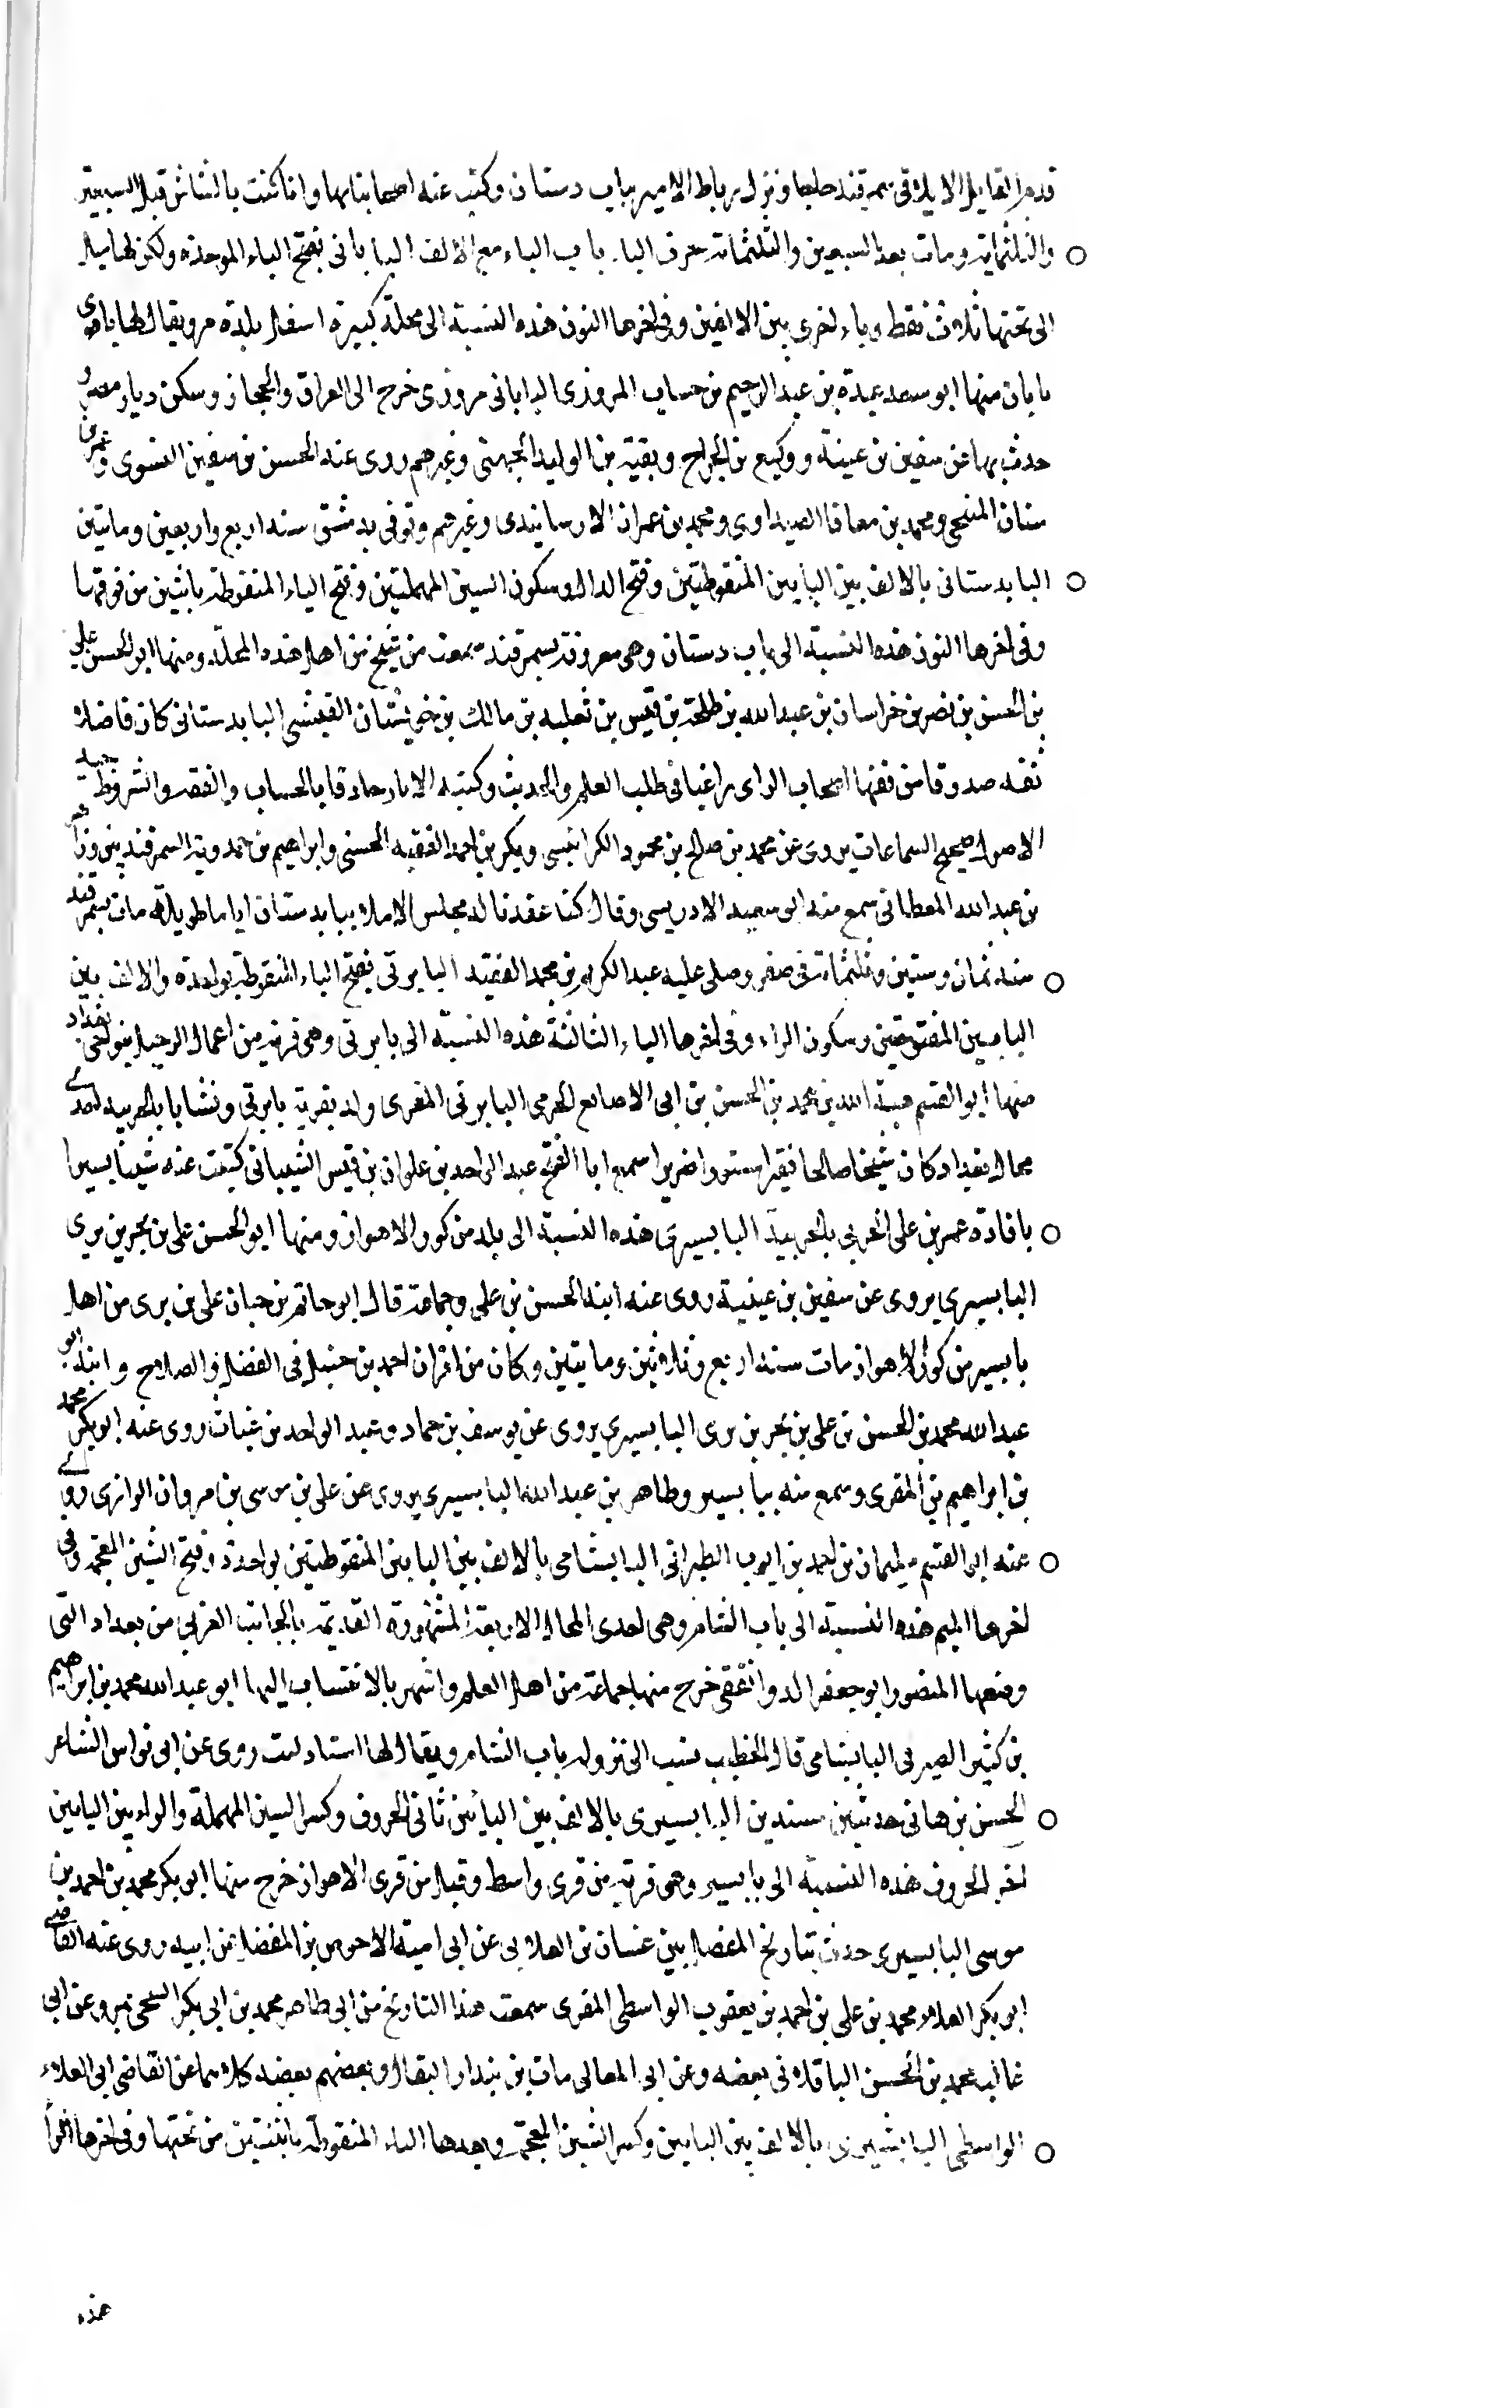 قدم ايلاق الايلاقى سمرقند حاجا ونزل برباط الامير بباب دستان وكتب عنه اصحابنا بها وانا كنت بالشاش قبل السبعين
والثلثماية ومات بعد السبعين والثلثماية حرف البا باب الباء مع الالف الباباني بفتح الباء الموحدة
الى تحتها ثلاث نقط وباء اخرى بين الالفين وفى اخرها النون هذه النسبة الى محلة كبيرة اسفل بلدة مرو يقال لها باباوى
بابان منها ابو سعد عبدة بن عبد الرحيم بن حساب المروزى الباباني مروزى خرج الى العراق والحجاز وسكن ديار مصر و
حدث بها عن سفين بن عيينة ووكيع بن الجراح وبقية بن الوليد وغيرهم روى عنه الحسن بن سفين النسوى وعمر بن
سنان المنبجى ومحمد بن معافا الصيداوى ومحمد بن عمران الارسابندى وغيرهم وتوفى بدمشق سنه اربع واربعين وماتين
البابدستانى بالالف بين البايين المنقوطتين وفتح الدال وسكون السين المهملتين وفتح الياء المنقوطة باثنين من فوقها
وفى اخرها النون هذه النسبة الى باب دستان وهى معروفة بسمرقند سمعت من شيخ من اهل هذه المحلة ومنها ابو الحسن على
بن الحسن بن نصر بن خراسان بن عبد الله بن طلحة بن قيس بن ثعلبه بن مالك بن القيسى البابدستانى كان فاضلا
ثقه صدوقا من فقها اصحاب الراى راغبا فى طلب العلم والحديث وكتبه الاثار حاذقا بالحساب والفقه والشروط جيد
الاصول صحيح السماعات يروى عن محمد بن صالح بن محمود الكرابيسى وبكر بن احمد الفقيه الحسنى وابراهيم بن حمدويه السمرقندين
بن عبد الله المعطانى سمع منه ابو سعيد الادريسى وقال كنا عقدنا له مجلس الاملا ببابدستان اياما طويلة مات بسمرقند
سنه ثمان وستين وثلثماة فى صفر وصلى عليه عبد الكريم بن محمد الفقيه البابرتى بفتح الباء المنقوطة بواحدة والالف بين
البايين المفتوحتين وسكون الراء وفى اخرها التاء الثالثة هذه النسبة الى بابرتى وهى قرية من اعمال الدجيل بنواحى بغداد
منها ابو القسم هبة الله بن محمد بن الحسن بن ابى الاصابع الحربى البابرتى المقرى ولد بقرية بابرتى ونشا بالحربيه احدى
محال بغداد كان شيخا صالحا فقيرا مستورا ضريرا سمع ابا الفتح عبد الواحد بن علوان بن قيس الشيبانى كتبت عنه شيئا يسيرا
بافادة عمر بن على الحربى بالحربية البابسيرى هذه النسبة الى بلد من كور الاهواز ومنها ابو الحسن على بن بحر بن برى
البابسيرى يروى عن سفين بن عيينة روى عنه ابنه الحسن بن على وجماعة قال ابو حاتم بن حبان على بن برى من اهل
بابسير من كور الاهواز مات سنه اربع وثلاثين وماتين وكان من اقران احمد بن حنبل فى الفضل والصلاح وابنه ابو
عبد الله محمد بن الحسن بن على بن بحر بن برى البابسيرى يروى عن يوسف بن حماد وعبد الواحد بن غياث روى عنه ابو بكر محمد
بن ابراهيم بن المقرى وسمع منه ببابسير وطاهر بن عبد الله البابسيرى يروى عن على بن موسى بن مروان الرازى روى
عنه ابو القسم سليمان بن احمد بن ايوب الطبرانى البابشامى بالالف بين البابين المنقوطتين بواحدة وفتح الشين المعجمه وفى
اخرها الميم هذه النسبة الى باب الشام وهى احدى المحال الاربعة المشهورة القديمة بالجانب الغربى من بغداد التى
وضعها المنصور ابو جعفر الدوانقى خرج منها جماعة من اهل العلم واشهر بالانتساب اليها ابو عبد الله محمد بن ابراهيم
بن كثير الصيرفى البابشامى قال الخطيب نسب الى نزوله باب الشام ويقال لها استاد لست روى عن ابى نواس الشاعر
الحسن بن هانى حديثين مسندين البابسيرى بالالف بين البائين ثانى الحروف وكسر السين المهملة والراء بين اليايين
اخر الحروف هذه النسبة الى بابسير وهى قرية من قرى واسط وقيل من قرى الاهواز خرج منها ابو بكر محمد بن احمد بن
موسى البابسيرى حدث بتاريخ المفضل بن غسان بن الغلابى عن ابى امية الاحوص بن المفضل عن ابيه روى عنه القاضى
ابو بكر العلاء محمد بن على بن احمد بن يعقوب الواسطى المقرى سمعت هذا التاريخ من ابى طاهر محمد بن ابى بكر السنجى بمرو عن ابى
غالب محمد بن الحسن الباقلانى بعضه وعن ابى المعالى ثابت بن بندار البقال وبعضهم بعضه كلاهما عن القاضى ابى العلاء
الواسطى البابشيرى بالالف بين البايين وكسر الشين المعجمة وبعدها الياء المنقوطة باثنتين من تحتها وفى اخرها الراء
هذه